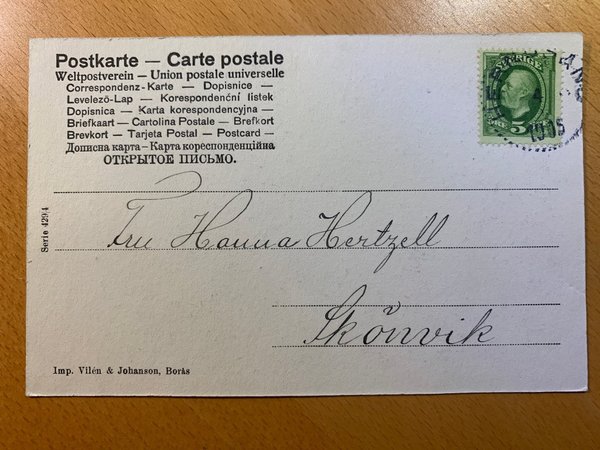 Postkarte — Carte postale
Weltpostverein — Union postale universelle
Correspondenz-Karte — Dopisnice —
Levelező-Lap — Korespondenční listek
Dopisnica — Karta korespondencyjna —
Briefkaart — Cartolina Postale — Brefkort
Brevkort — Tarjeta Postal — Postcard —
Дописна карта — Карта кореспонденційна
ОТКРЫТОЕ ПИСЬМО.
SVERIGE
5
1905
Serie 4294
Fru Hanna Hertzell
Skönvik
Imp. Vilén & Johanson, Borås